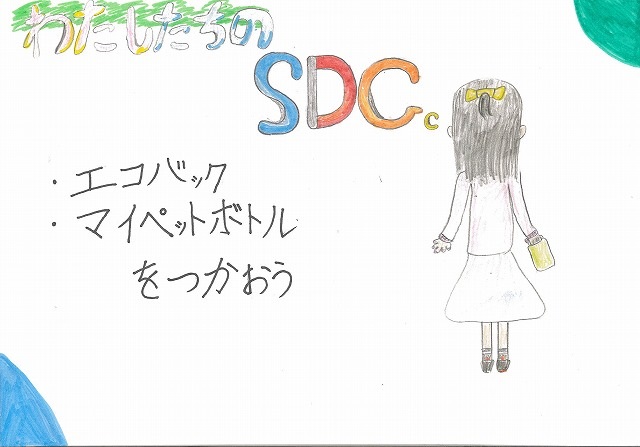 わたしたちの
SDGc
・エコバック
・マイペットボトル
をつかおう